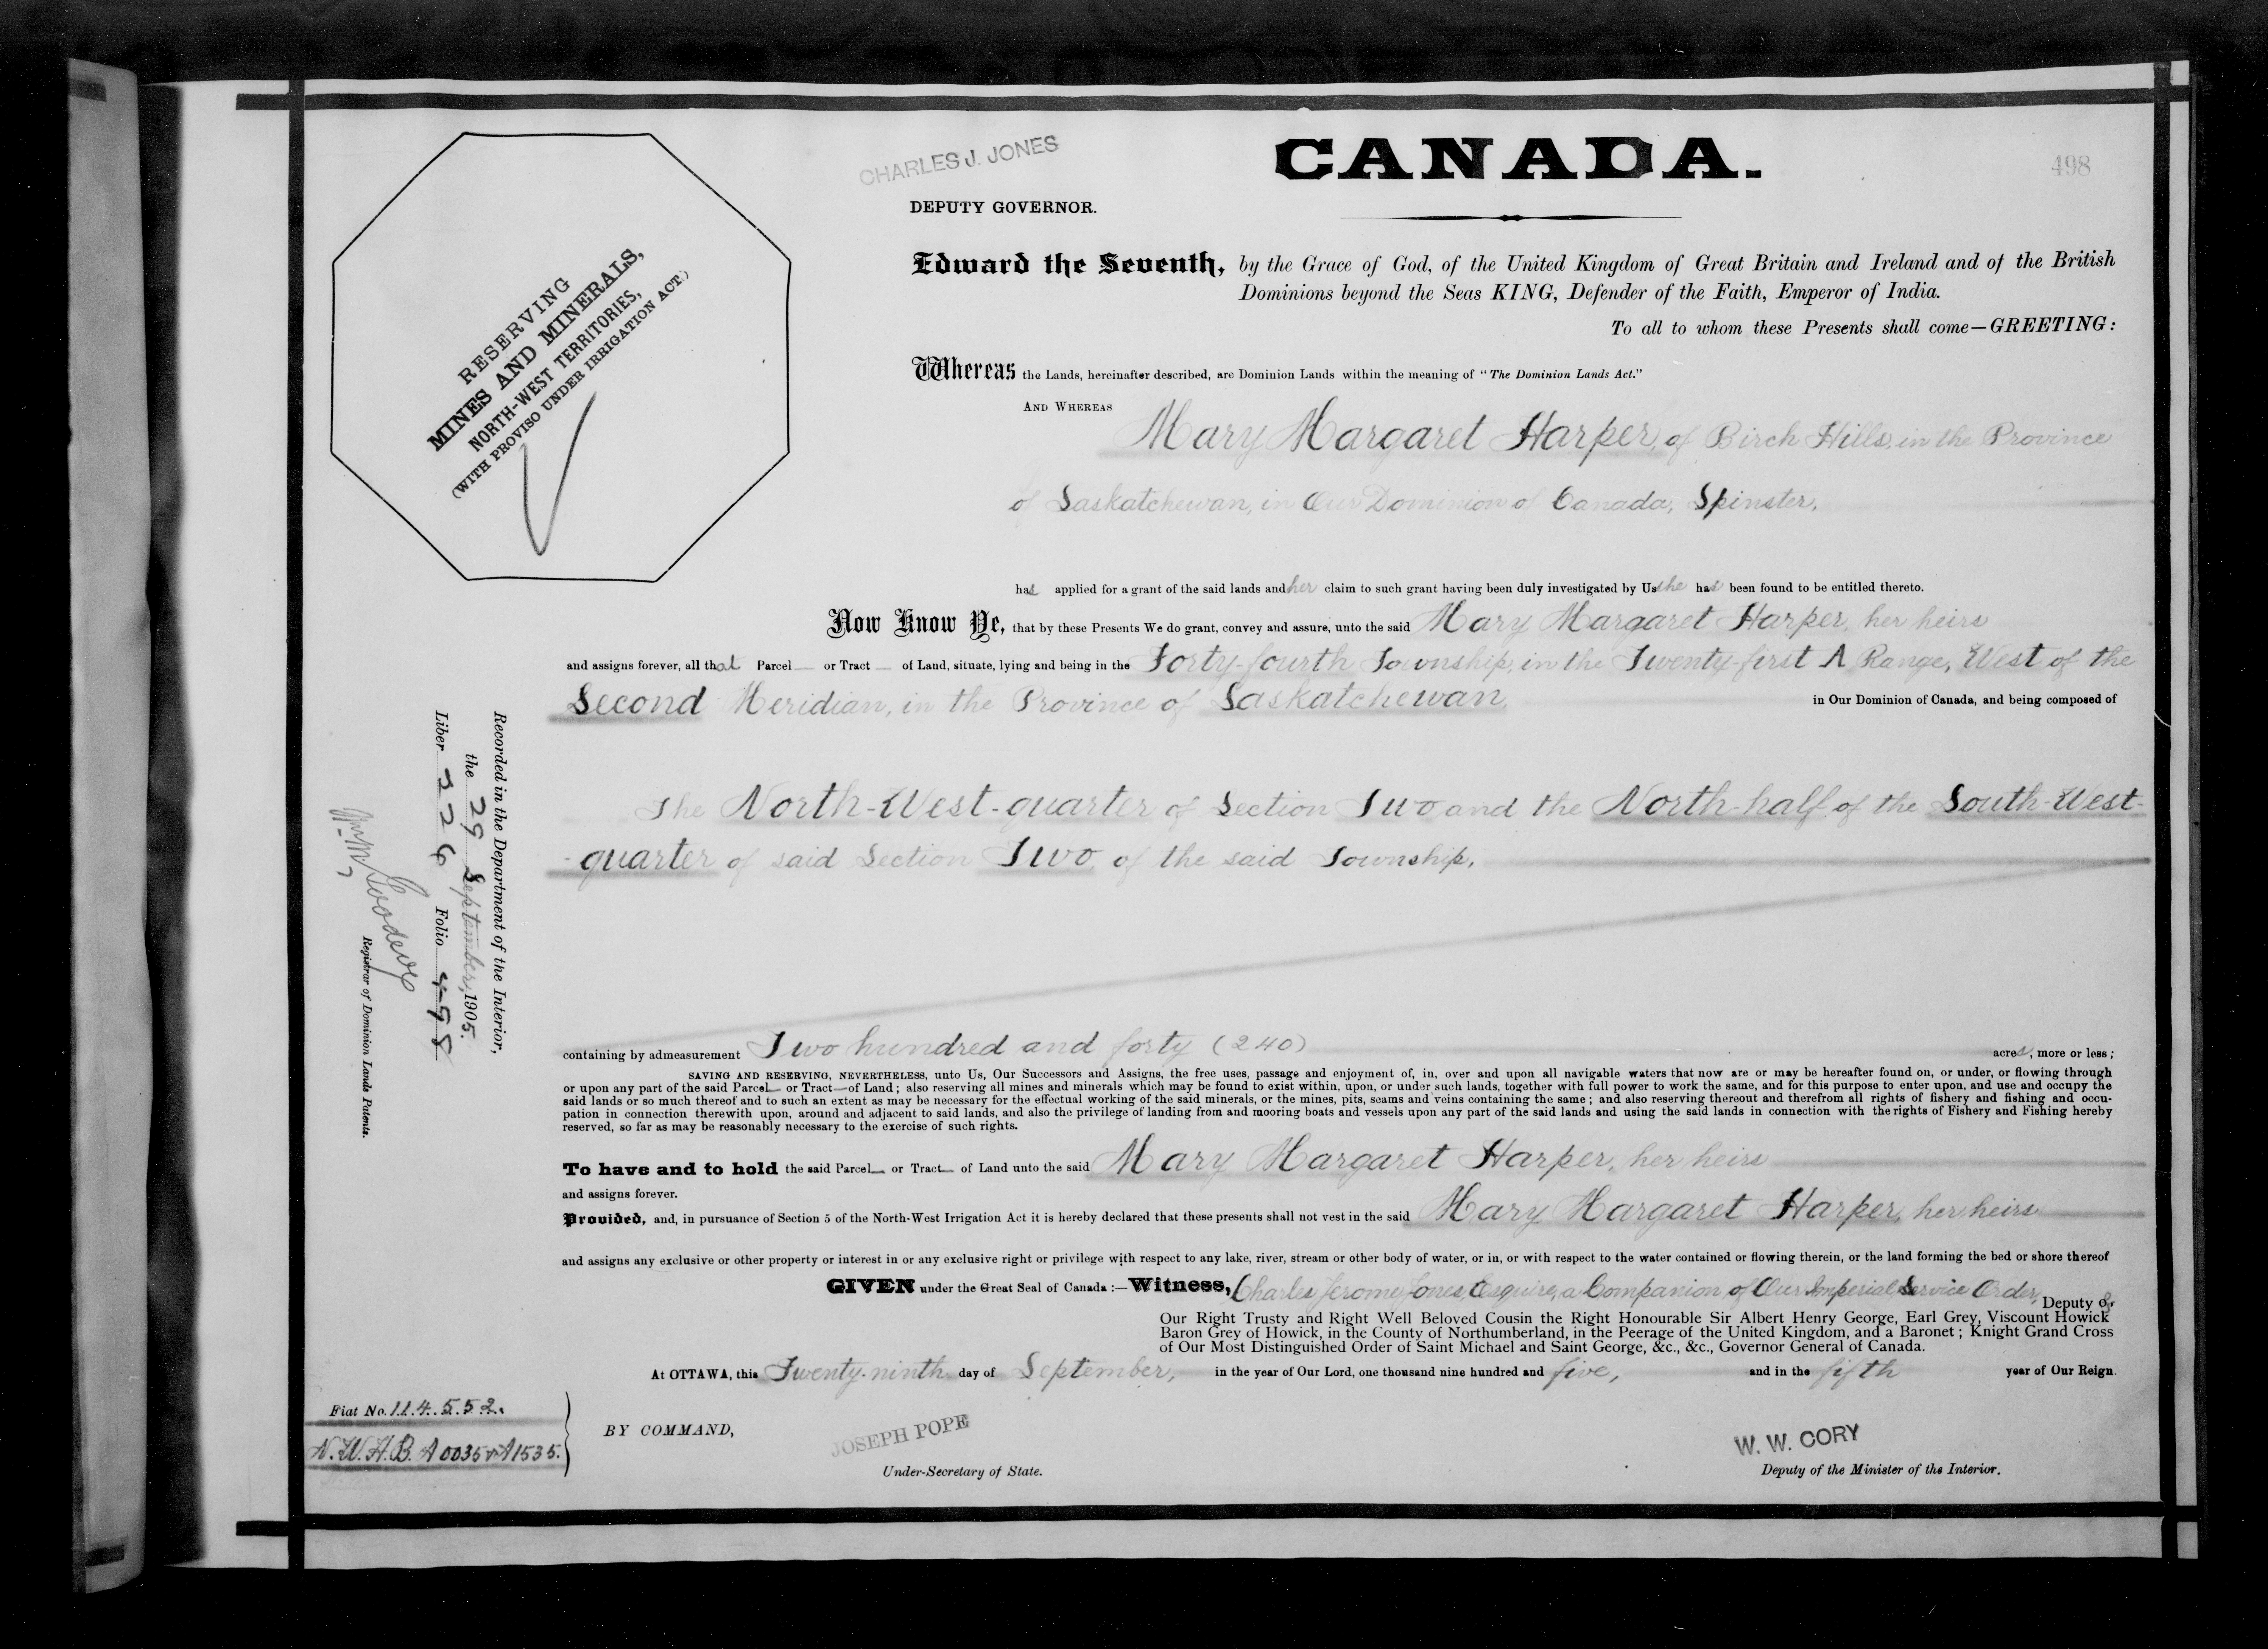 CHARLES J. JONES
CANADA.
498
DEPUTY GOVERNOR.
RESERVING
MINES AND MINERALS,
NORTH-WEST TERRITORIES,
(WITH PROVISO UNDER IRRIGATION ACT.)
Edward the Seventh, by the Grace of God, of the United Kingdom of Great Britain and Ireland and of the British
Dominions beyond the Seas KING, Defender of the Faith, Emperor of India.
To all to whom these Presents shall come—GREETING:
Whereas the Lands, hereinafter described, are Dominion Lands within the meaning of "The Dominion Lands Act."
AND WHEREAS
Mary Margaret Harper, of Birch Hills, in the Province
of Saskatchewan, in Our Dominion of Canada, Spinster,
has applied for a grant of the said lands and her claim to such grant having been duly investigated by Us she has been found to be entitled thereto.
Now Know Ye, that by these Presents We do grant, convey and assure, unto the said Mary Margaret Harper, her heirs
and assigns forever, all that Parcel — or Tract — of Land, situate, lying and being in the Forty-fourth Township, in the Twenty-first A Range, West of the
Second Meridian, in the Province of Saskatchewan in Our Dominion of Canada, and being composed of
The North-West-quarter of Section Two and the North-half of the South-West-
-quarter of said Section Two, of the said Township,
containing by admeasurement Two hundred and forty (240) acres, more or less;
SAVING AND RESERVING, NEVERTHELESS, unto Us, Our Successors and Assigns, the free uses, passage and enjoyment of, in, over and upon all navigable waters that now are or may be hereafter found on, or under, or flowing through
or upon any part of the said Parcel— or Tract—of Land; also reserving all mines and minerals which may be found to exist within, upon, or under such lands, together with full power to work the same, and for this purpose to enter upon, and use and occupy the
said lands or so much thereof and to such an extent as may be necessary for the effectual working of the said minerals, or the mines, pits, seams and veins containing the same; and also reserving thereout and therefrom all rights of fishery and fishing and occu-
pation in connection therewith upon, around and adjacent to said lands, and also the privilege of landing from and mooring boats and vessels upon any part of the said lands and using the said lands in connection with the rights of Fishery and Fishing hereby
reserved, so far as may be reasonably necessary to the exercise of such rights.
To have and to hold the said Parcel— or Tract— of Land unto the said Mary Margaret Harper, her heirs
and assigns forever.
Provided, and, in pursuance of Section 5 of the North-West Irrigation Act it is hereby declared that these presents shall not vest in the said Mary Margaret Harper, her heirs
and assigns any exclusive or other property or interest in or any exclusive right or privilege with respect to any lake, river, stream or other body of water, or in, or with respect to the water contained or flowing therein, or the land forming the bed or shore thereof
GIVEN under the Great Seal of Canada :—Witness, Charles Jerome Jones, Esquire, a Companion of Our Imperial Service Order, Deputy of
Our Right Trusty and Right Well Beloved Cousin the Right Honourable Sir Albert Henry George, Earl Grey, Viscount Howick
Baron Grey of Howick, in the County of Northumberland, in the Peerage of the United Kingdom, and a Baronet; Knight Grand Cross
of Our Most Distinguished Order of Saint Michael and Saint George, &c., &c., Governor General of Canada.
At OTTAWA, this Twenty-ninth day of September, in the year of Our Lord, one thousand nine hundred and five, and in the fifth year of Our Reign.
BY COMMAND,
JOSEPH POPE
Under-Secretary of State.
W. W. CORY
Deputy of the Minister of the Interior.
Recorded in the Department of the Interior,
the 29 September, 1905.
Liber 326 Folio 498
Registrar of Dominion Lands Patents.
Fiat No. 114.552.
N.W.H.B. A0035 & A1535.